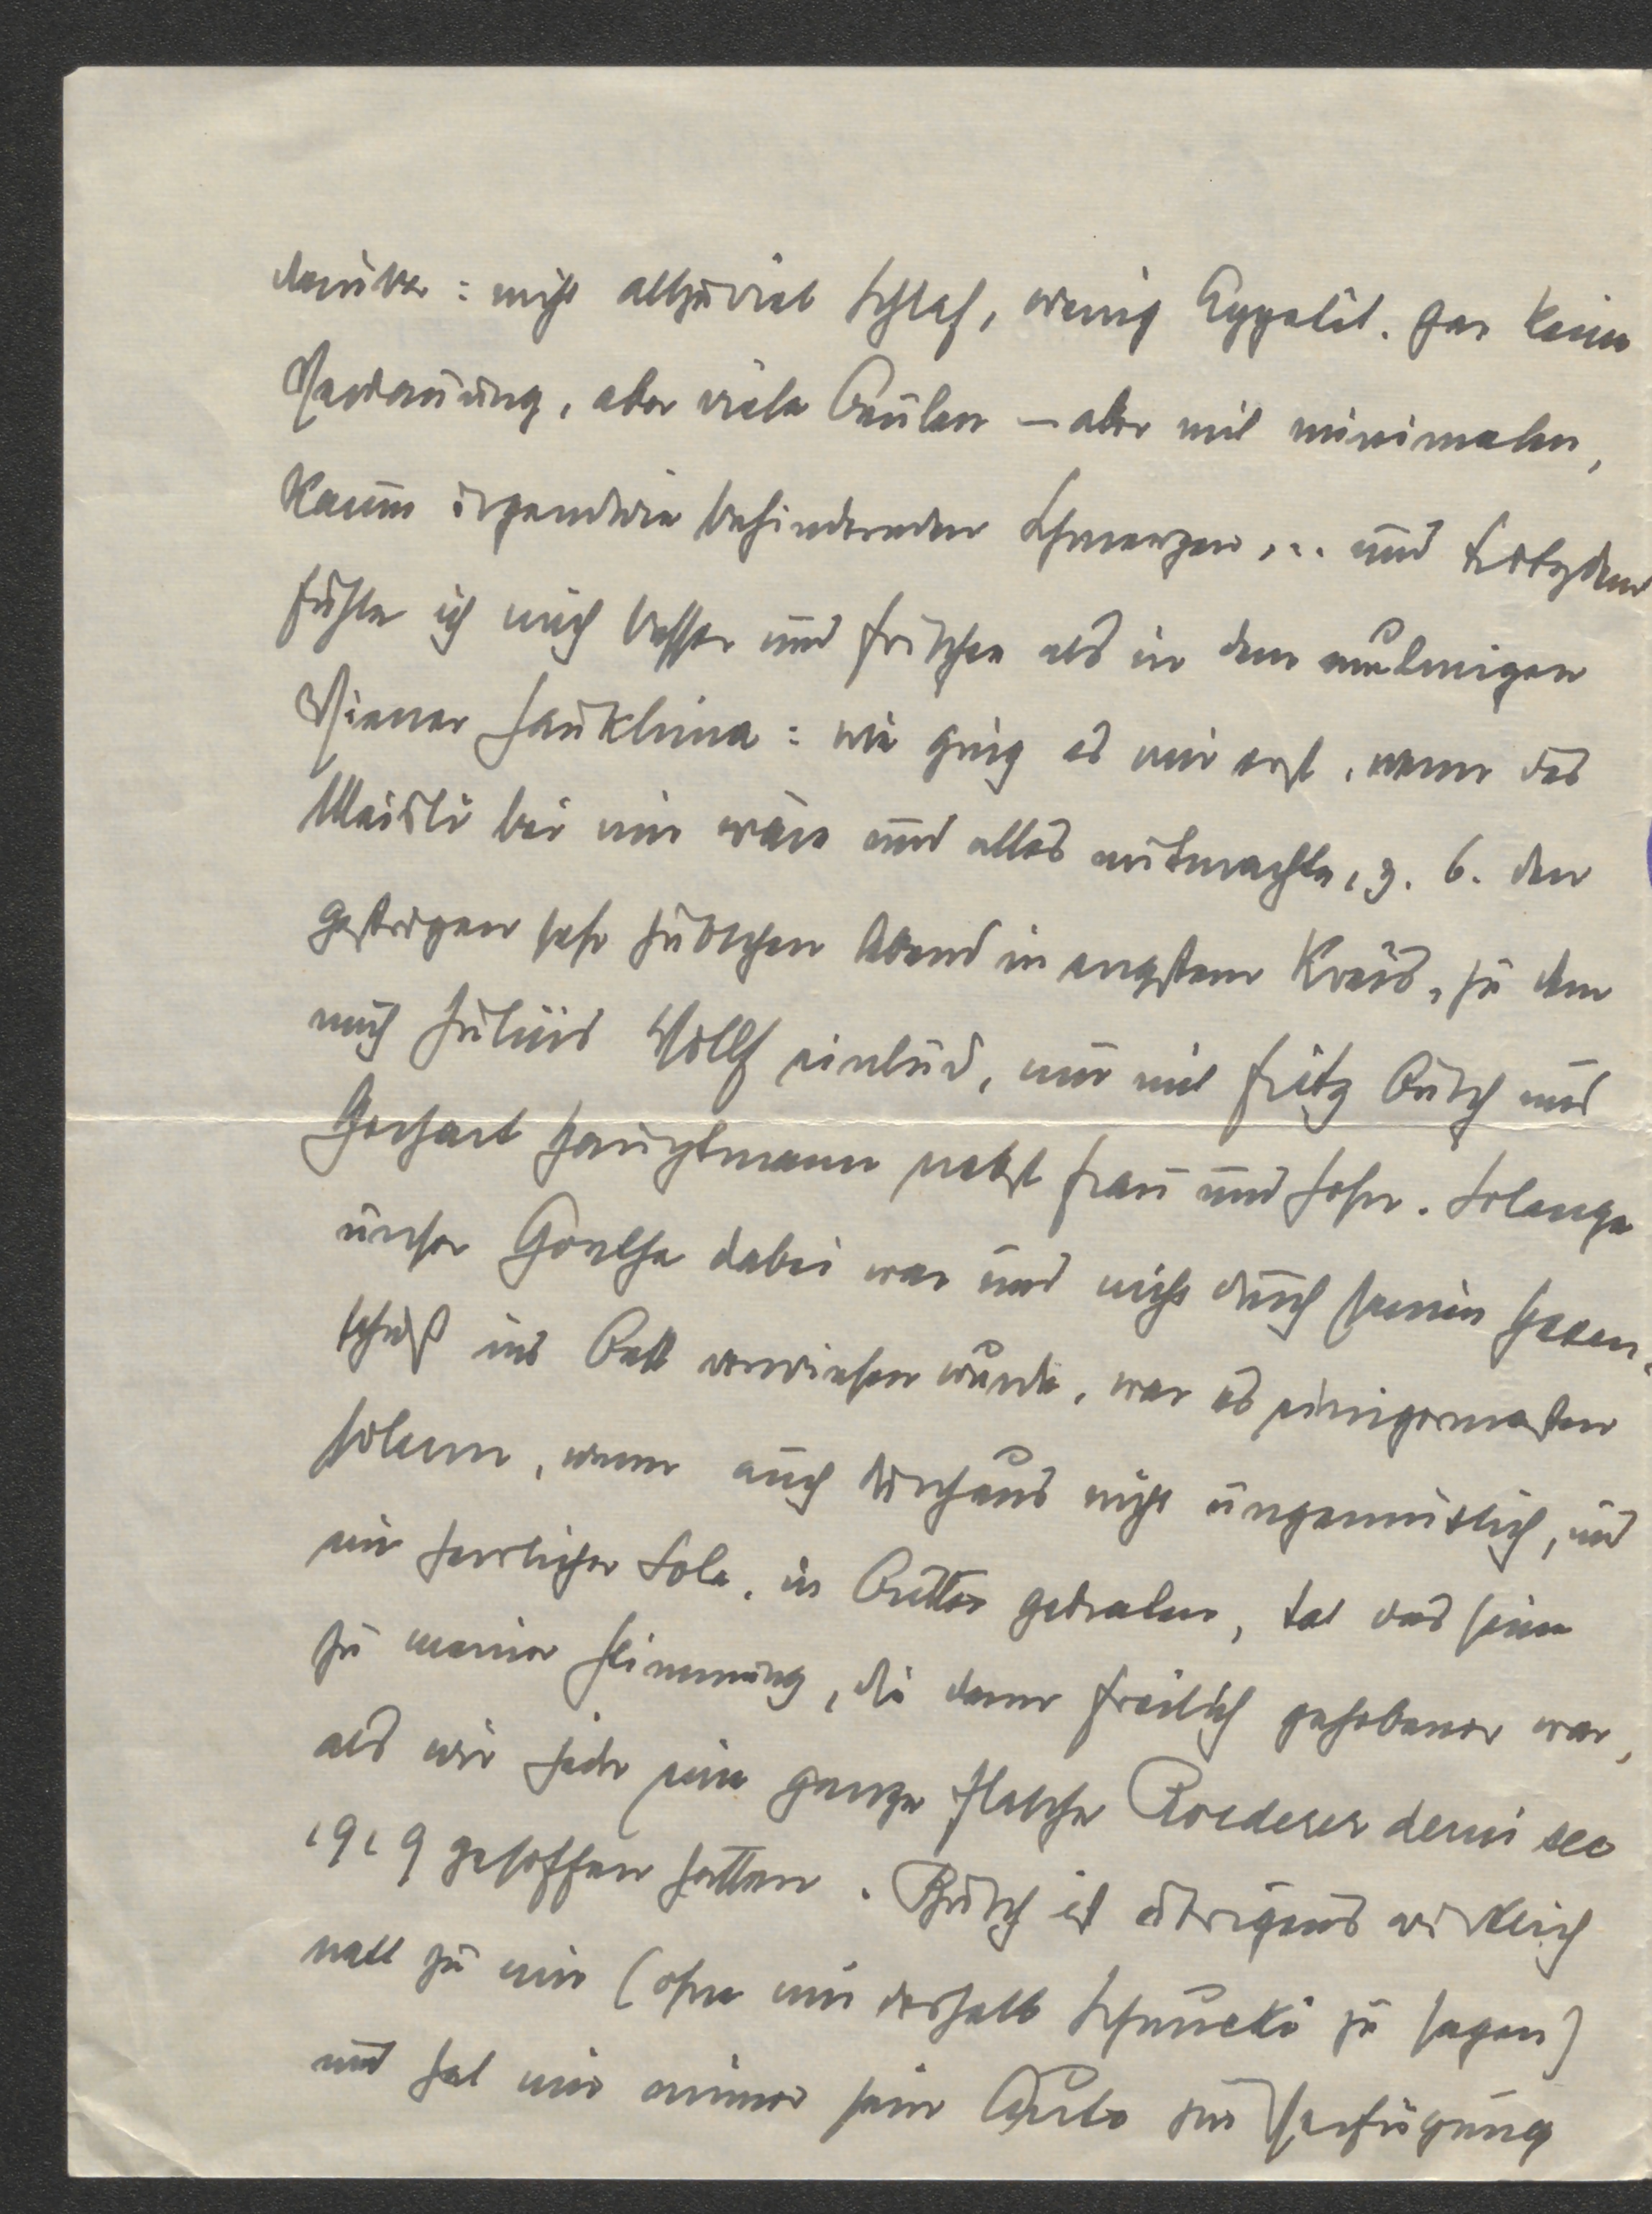 darüber: nicht allzuviel Schlaf, wenig Appetit. gar keine
Verdauung, aber viele Beulen – aber mit minimalen,
kaum irgendwie behindernden Schmerzen ... und trotzdem
fühle ich mich besser und frischer als in dem mulmigen
Wiener Sauklima: wie ging es mir erst, wenn das
Maisli bei mir wäre und alles mitmachte, z. B. den
gestrigen sehr hübschen Abend in engstem Kreis, zu dem
mich Julius Wolff einlud, nur mit Fritz Busch und
Gerhart Hauptmann nebst Frau und Sohn. Solange
unser Goethe dabei war und nicht durch seinen Hexen-
schuß ins Bett verwiesen wurde, war es einigermaßen
solenn, wenn auch durchaus nicht ungemütlich, und
ein herrlicher Sole, in Butter gebraten, tat das seine
zu meiner Stimmung, die dann freilich gehobener war,
als wir jeder eine ganze Flasche Roederer demi sec
1919 gesoffen hatten. Busch ist übrigens wirklich
nett zu mir (ohne mir deshalb Schnucki zu sagen)
und hat mir immer sein Auto zur Verfügung